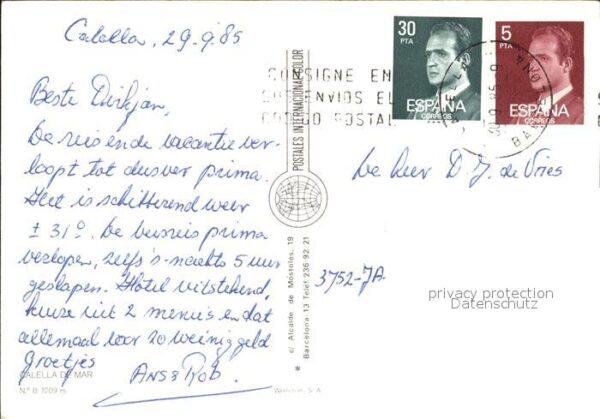 Calella, 29.9.85
Beste Dirkjan,
De reis en de vacantie ver-
loopt tot dusver prima.
Het is schitterend weer
± 31°. De busreis prima
verlopen, zelfs 's-nachts 5 uur
geslapen. Hotel uitstekend,
keuze uit 2 menu's en dat
allemaal voor zo weinig geld
groetjes
Ans & Rob.
CALELLA DE MAR
N.º B. 1209 m.
POSTALES INTERNACIONAL COLOR
c/ Alcalde de Móstoles, 19
* Barcelona 13 Telef 236 92 21
30
PTA
ESPAÑA
CORREOS
5
PTA
ESPAÑA
CORREOS
CONSIGNE EN
SUS ENVIOS EL
CODIGO POSTAL
De heer D. J. de Vries
3752-JA
privacy protection
Datenschutz